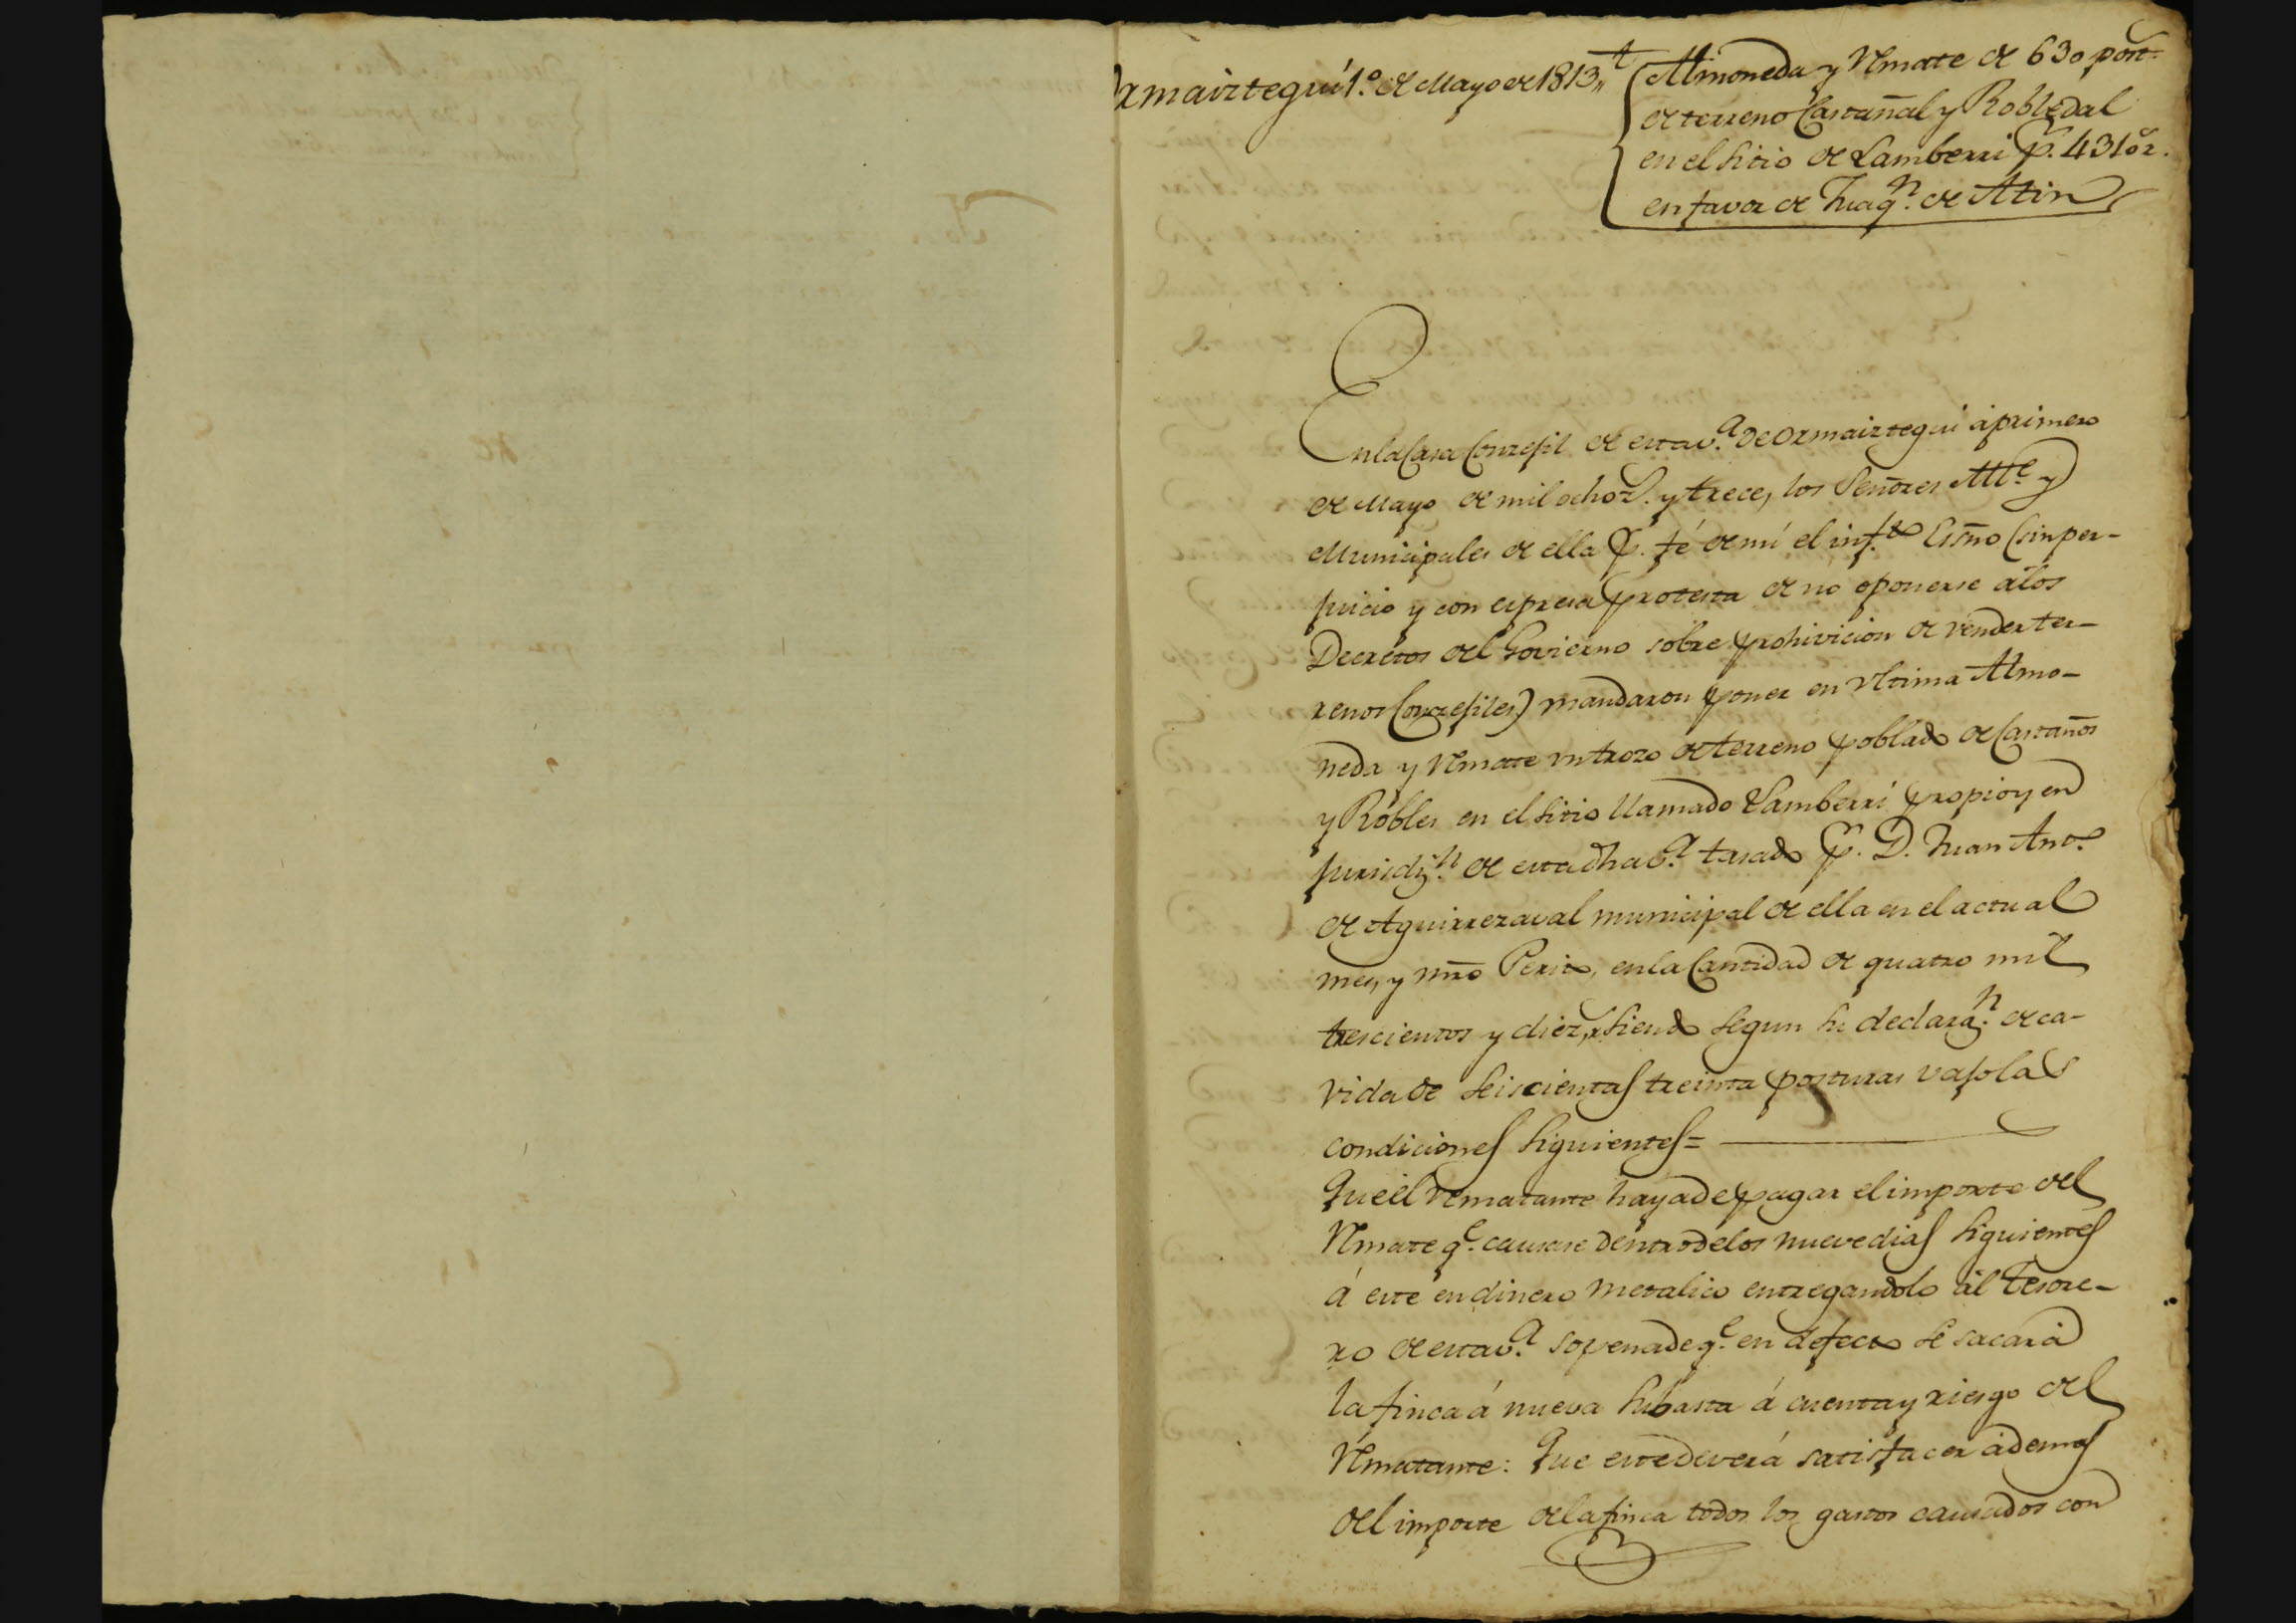 Ormaiztegui 1.º de Mayo de 1813,,
Almoneda y Remate de 630 post.s
de terreno Castañal y Robledal
en el sitio de Lamberri p.r 4310 r.
en favor de Juaq.n de Atin
En la Casa Conzegil de esta v.a de Ormaiztegui á primero
de Mayo de mil ochoz.s y trece, los Señores Alc.e y
Municipales de ella p.r fé de mi el inf.to Esño (sin per-
juicio y con espresa protesta de no oponerse á los
Decretos del Govierno sobre prohivicion de vender ter-
renos Conzegiles) mandaron poner en ultima Almo-
neda y Remate un trozo de terreno poblado de Castaños
y Robles en el sitio llamado Lamberri propio y en
jurisdiz.n de esta dha v.a tasado p.r D. Juan Ant.o
de Aguirrezaval municipal de ella en el actual
mes, y mro Perito, en la Cantidad de quatro mil
trescientos y diez r.s siendo segun su declaraz.n de ca-
vida de seiscientas treinta posturas vajo las
condiciones siguientes =
Que el rematante haya de pagar el importe del
Remate q.e causare dentro de los nueve dias siguientes
á este en dinero metalico entregandolo al Tesore-
ro de esta v.a so pena de q.e en defecto se sacará
la finca á nueva subasta á cuenta y riesgo del
Rematante: Que este deverá satisfacer ademas
del importe de la finca todos los gastos causados con